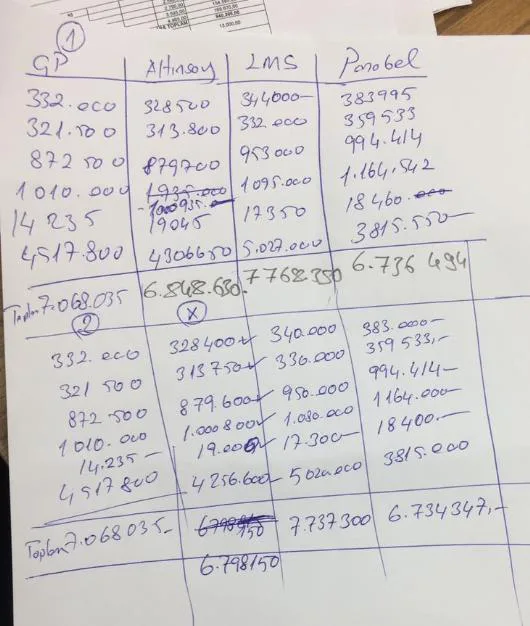 1
GP Altınsoy LMS Panobel
332.000 328500 344000- 383995
321.500 313.800 332.000 359533
872500 879700 953000 994.414
1010.000 1.935.000 1095.000 1.164.542
1000935.-
14235 19045 17350 18460.000
4517.800 4306650 5.027.000 3815.550-
Toplam 7.068.035 6.848.630. 7768.350 6.736 494
2 X
332.000 328400 340.000 383.000-
321500 313750 330.000 359533,-
872.500 879.600 950.000 994.414-
1010.000 1.000800 1.080.000 1164.000-
14.235- 19.000 17.300- 18400.-
4517800 4256.600- 5020.000 3815.000
Toplam 7.068.035- 7.737300 6.734347,-
6.798150